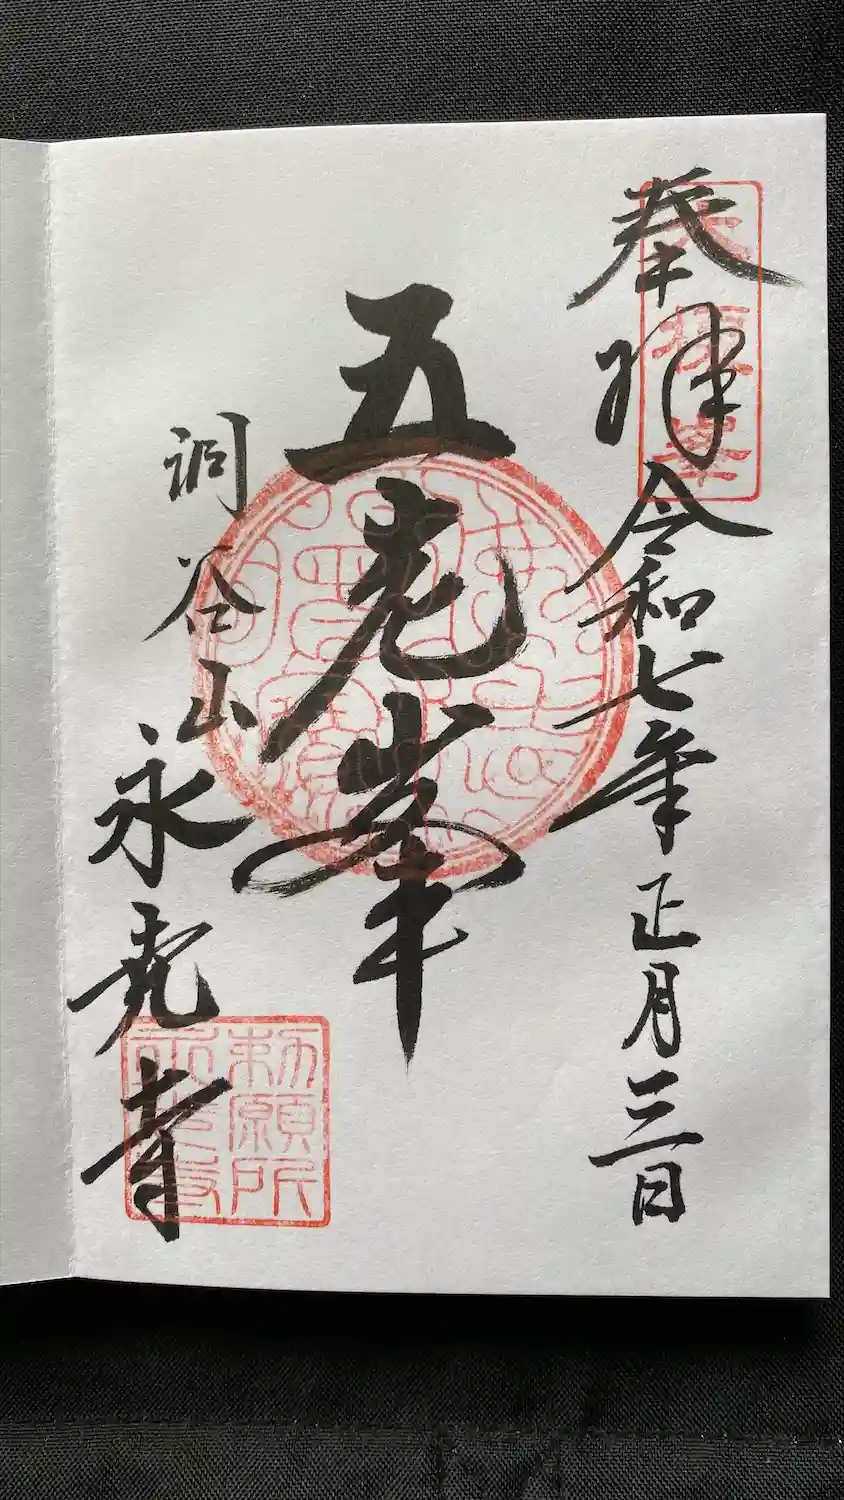 奉拝 令和七年正月三日
五老峯
洞谷山
永光寺
勅願所
永光寺